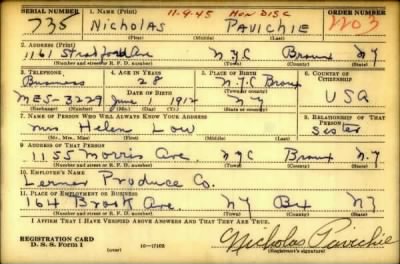 SERIAL NUMBER 1. NAME (Print) 11.9.45 HON DISC ORDER NUMBER
735 Nicholas Pavichie 2203
(First) (Middle) (Last)
2. ADDRESS (Print)
1161 Stratford Ave NYC Bronx NY
(Number and street or R. F. D. number) (Town) (County) (State)
3. TELEPHONE 4. AGE IN YEARS 5. PLACE OF BIRTH 6. COUNTRY OF CITIZENSHIP
Business 28 N.Y.C Bronx
DATE OF BIRTH (Town or county)
MES-3229 June 1912 NY USA
(Exchange) (Number) (Mo.) (Day) (Yr.) (State or country)
7. NAME OF PERSON WHO WILL ALWAYS KNOW YOUR ADDRESS 8. RELATIONSHIP OF THAT PERSON
Mrs Helen Low Sister
(Mr., Mrs., Miss) (First) (Middle) (Last)
9. ADDRESS OF THAT PERSON
1155 Morris Ave. NYC Bronx N.Y
(Number and street or R. F. D. number) (Town) (County) (State)
10. EMPLOYER'S NAME
Lerner Produce Co.
11. PLACE OF EMPLOYMENT OR BUSINESS
164 Ave. NY Bx NY
(Number and street or R. F. D. number) (Town) (County) (State)
I AFFIRM THAT I HAVE VERIFIED ABOVE ANSWERS AND THAT THEY ARE TRUE.
REGISTRATION CARD
D. S. S. Form 1 (over) 16-17105 Nicholas Pavichie
(Registrant's signature)